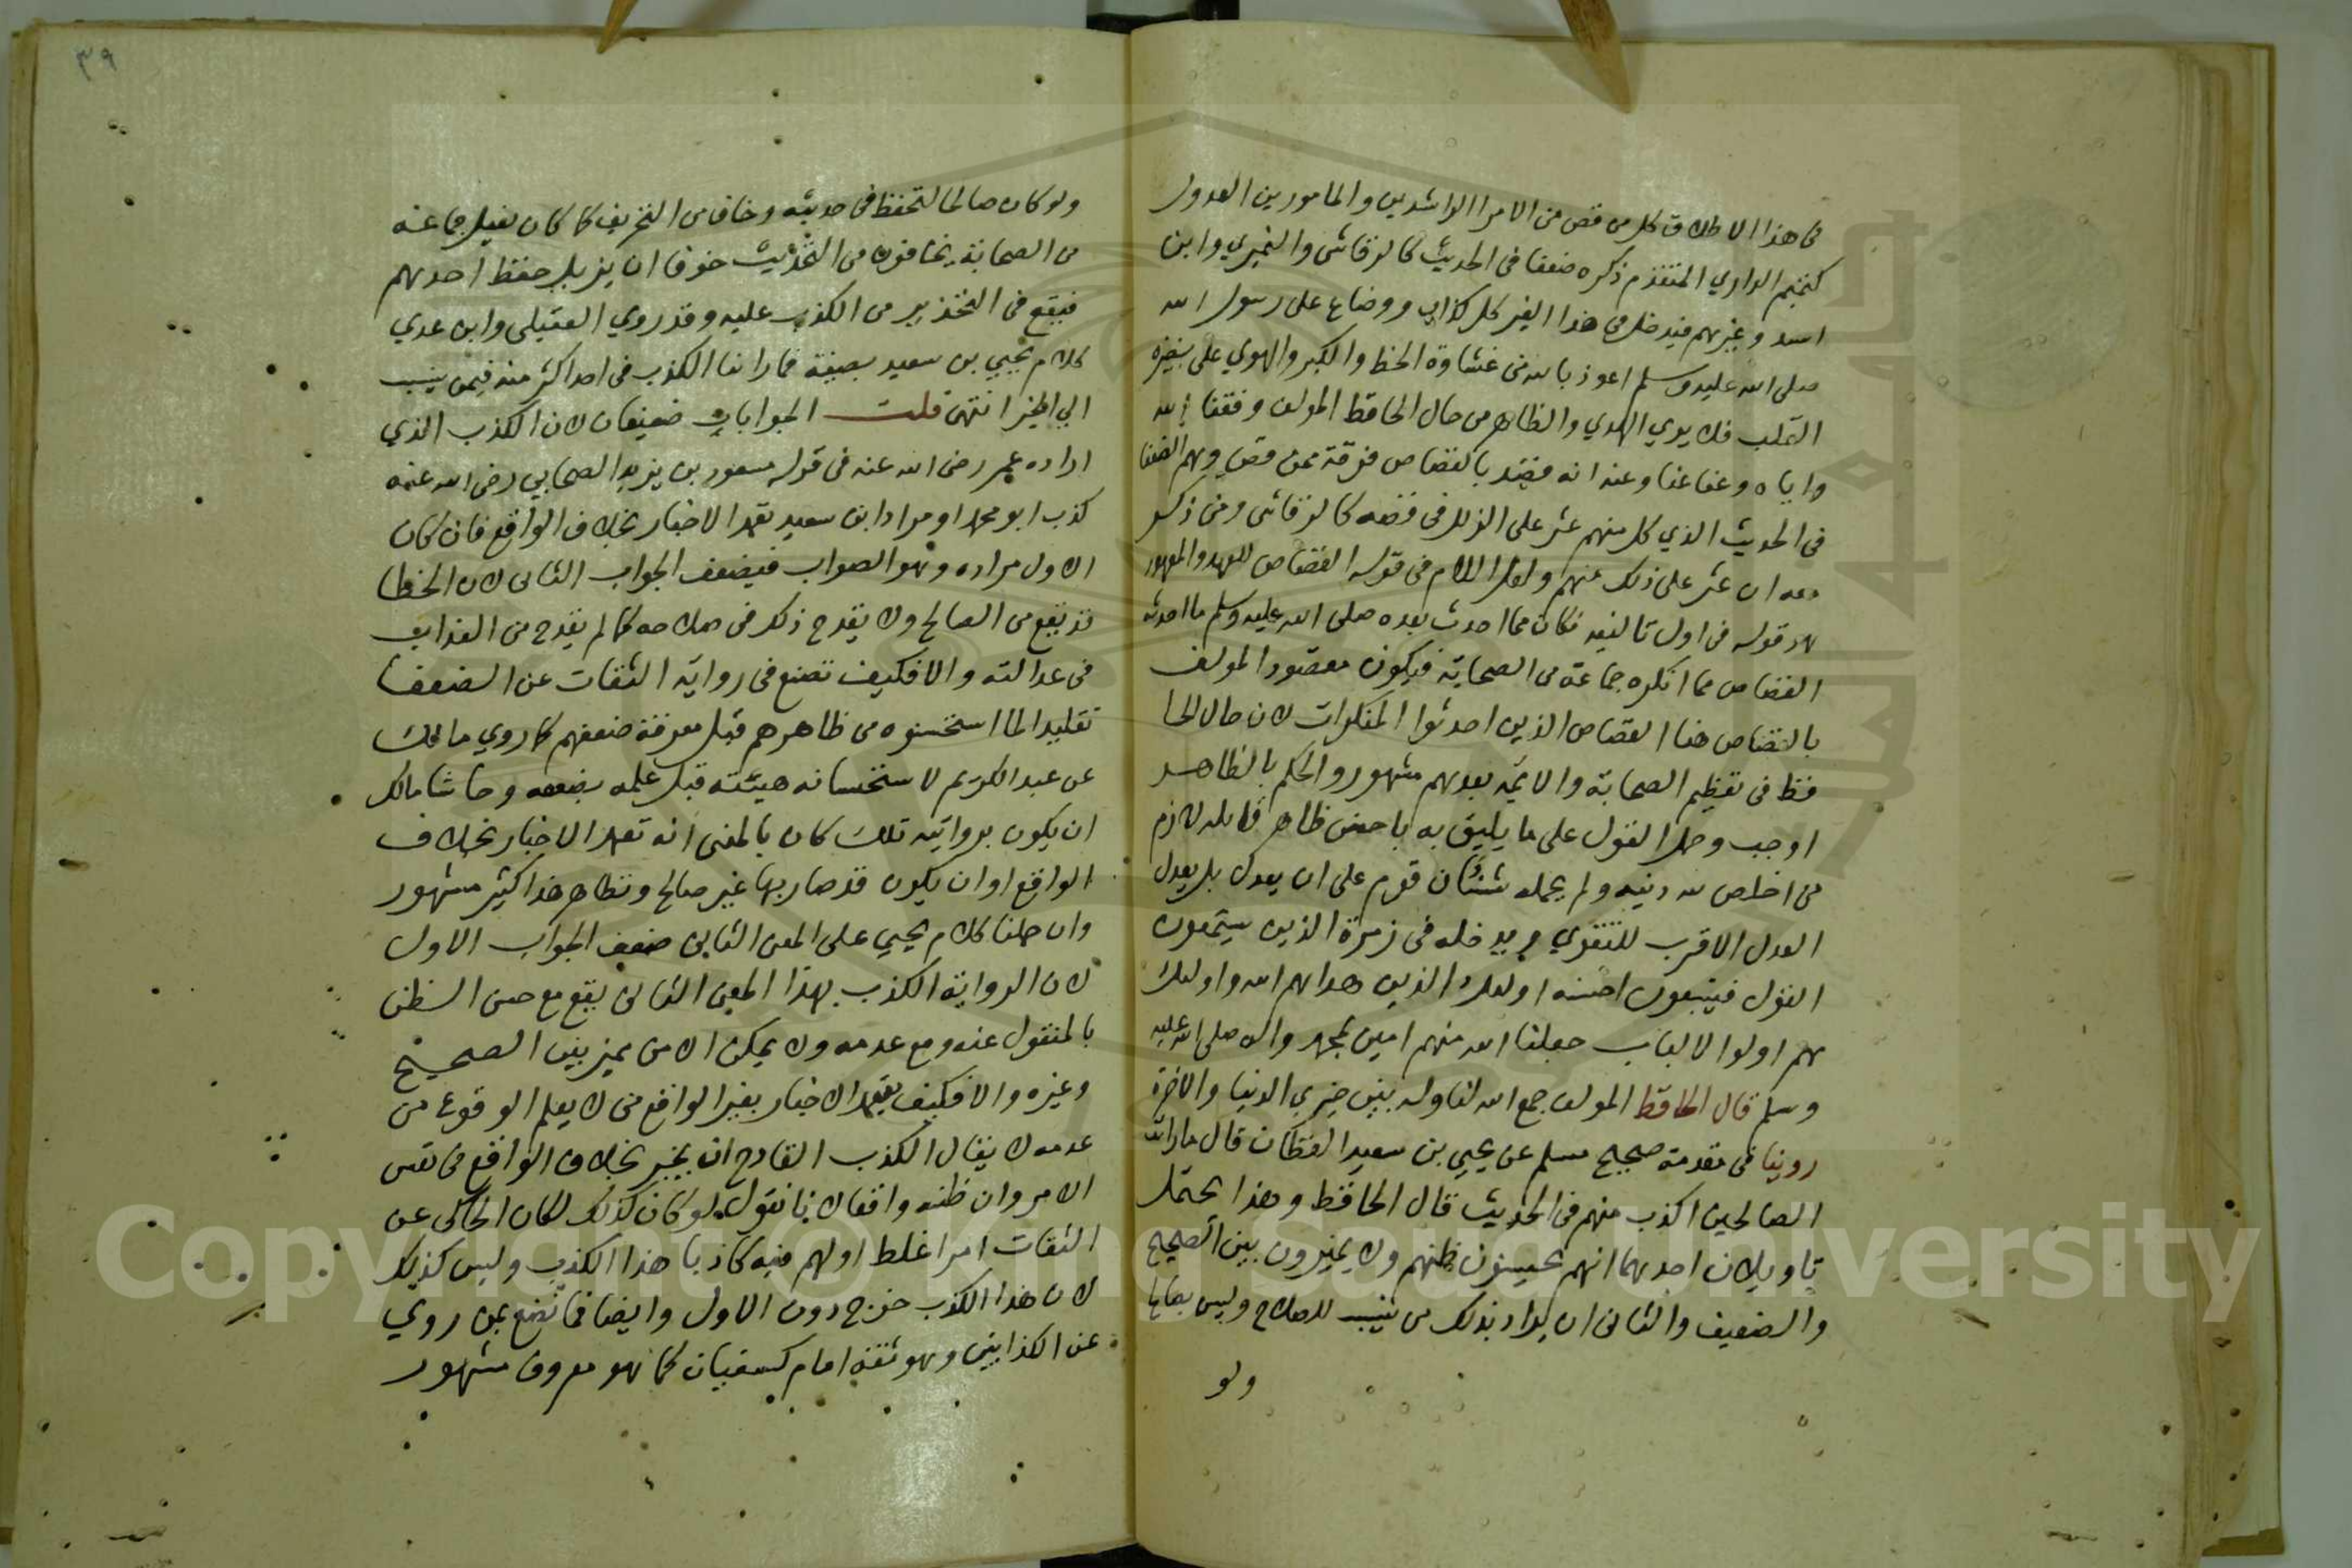 في هذا الاطلاق كل من قص من الامرا الراشدين والمامورين العدول
كتميم الداري المتقدم ذكره ضعفا في الحديث كالرقاشي والنميري وابن
اسد وغيرهم فيدخل في هذا الغير كل كذاب ووضاع على رسول الله
صلى الله عليه وسلم اعوذ بالله من غشاوة الحظ والكبر والهوي على بصيرة
القلب فلا يري الهدي والظاهر من حال الحافظ المولف وفقنا الله
واياه وعفا عنا وعنه انه يقصد بالقصاص فرقة ممن قص وهم الضعفا
في الحديث الذي كل منهم عثر على الزلل في قصصه كالرقاشي ومن ذكر
معه ان عثر على ذلك منهم ولعل اللام في قوله القصاص للعهد والمعهود
قوله في اول تاليفه فكان مما احدث بعده صلى الله عليه وسلم ما احدثه
القصاص مما انكره جماعة من الصحابة فيكون مقصود المولف
بالقصاص هنا القصاص الذين احدثوا المنكرات لان حال الحا
فظ في تعظيم الصحابة والايمة بعدهم مشهور والحكم بالظاهر
اوجب وحمل القول على ما يليق به باحسن ظاهر قابله لازم
من اخلص لله دينه ولم يحمله شنئان قوم على ان يعدل بل يعدل
العدل الاقرب للتقوي ويدخله في زمرة الذين يستمعون
القول فيتبعون احسنه اوليك الذين هداهم الله واوليك
هم اولوا الالباب جعلنا الله منهم امين بمحمد واله صلى الله عليه
وسلم قال الحافظ المولف جمع الله لنا وله بين خيري الدنيا والاخرة
روينا في مقدمة صحيح مسلم عن يحيي بن سعيد القطان قال ما رايت
الصالحين اكذب منهم في الحديث قال الحافظ وهذا يحتمل
تاويلان احدهما انهم يحسنون ظنهم ولا يميزون بين الصحيح
والضعيف والثاني ان يراد بذلك من ينسب للصلاح وليس بصالح
ولو
٣٩
ولو كان صالحا لتحفظ في حديثه وخاف من التحريف كما كان يفعل جماعة
من الصحابة يخافون من التحديث خوفا ان يزل حفظ احدهم
فيقع في التحذير من الكذب عليه وقد روي العقيلي وابن عدي
كلام يحيي بن سعيد بصيغة ما راينا الكذب في احد اكثر منه فيمن ينسب
الي الخير انتهى قلت الجوابان ضعيفان لان الكذب الذي
اراده عمر رضي الله عنه في قوله مسعود بن يزيد الصحابي رضي الله عنه
كذب ابو محمد او مراد ابن سعيد تعمد الاخبار بخلاف الواقع فان كان
الاول مراده وهو الصواب فيضعف الجواب الثاني لان الخطا
قد يقع من الصالح ولا يقدح ذلك في صلاحه كما لم يقدح من
في عدالته والا فكيف تصنع في رواية الثقات عن الضعفا
تقليدا لما استحسنوه من ظاهرهم قبل معرفة ضعفهم كما روي مالك
عن عبد الكريم لاستحسانه هيئته قبل علمه بضعفه وحاشا مالك
ان يكون بروايته تلك كان بالمعنى انه تعمد الاخبار بخلاف
الواقع او ان يكون قد صار بها غير صالح ونظاهر هذا كثير مشهور
وان حملنا كلام يحيي على المعنى الثاني ضعف الجواب الاول
لان الرواية الكذب بهذا المعنى الثاني يقع مع حسن الظن
بالمنقول عنه ومع عدمه ولا يمكن الا من مميز بين الصحيح
وغيره والا فكيف يتعمد الاخبار بغير الواقع من لا يعلم الوقوع من
عدمه لا يقال الكذب القادح ان يخبر بخلاف الواقع في نفس
الامر وان ظنه واقعا لانا نقول لو كان كذلك لكان الحاكي عن
الثقات امرا غلط اولهم فيه كاذبا هذا الكذب وليس كذلك
لان هذا الكذب خرج دون الاول وايضا فما تصنع بمن روي
عن الكذابين وهو ثقة امام كسفيان كما هو معروف مشهور
Copyright © King Saud University